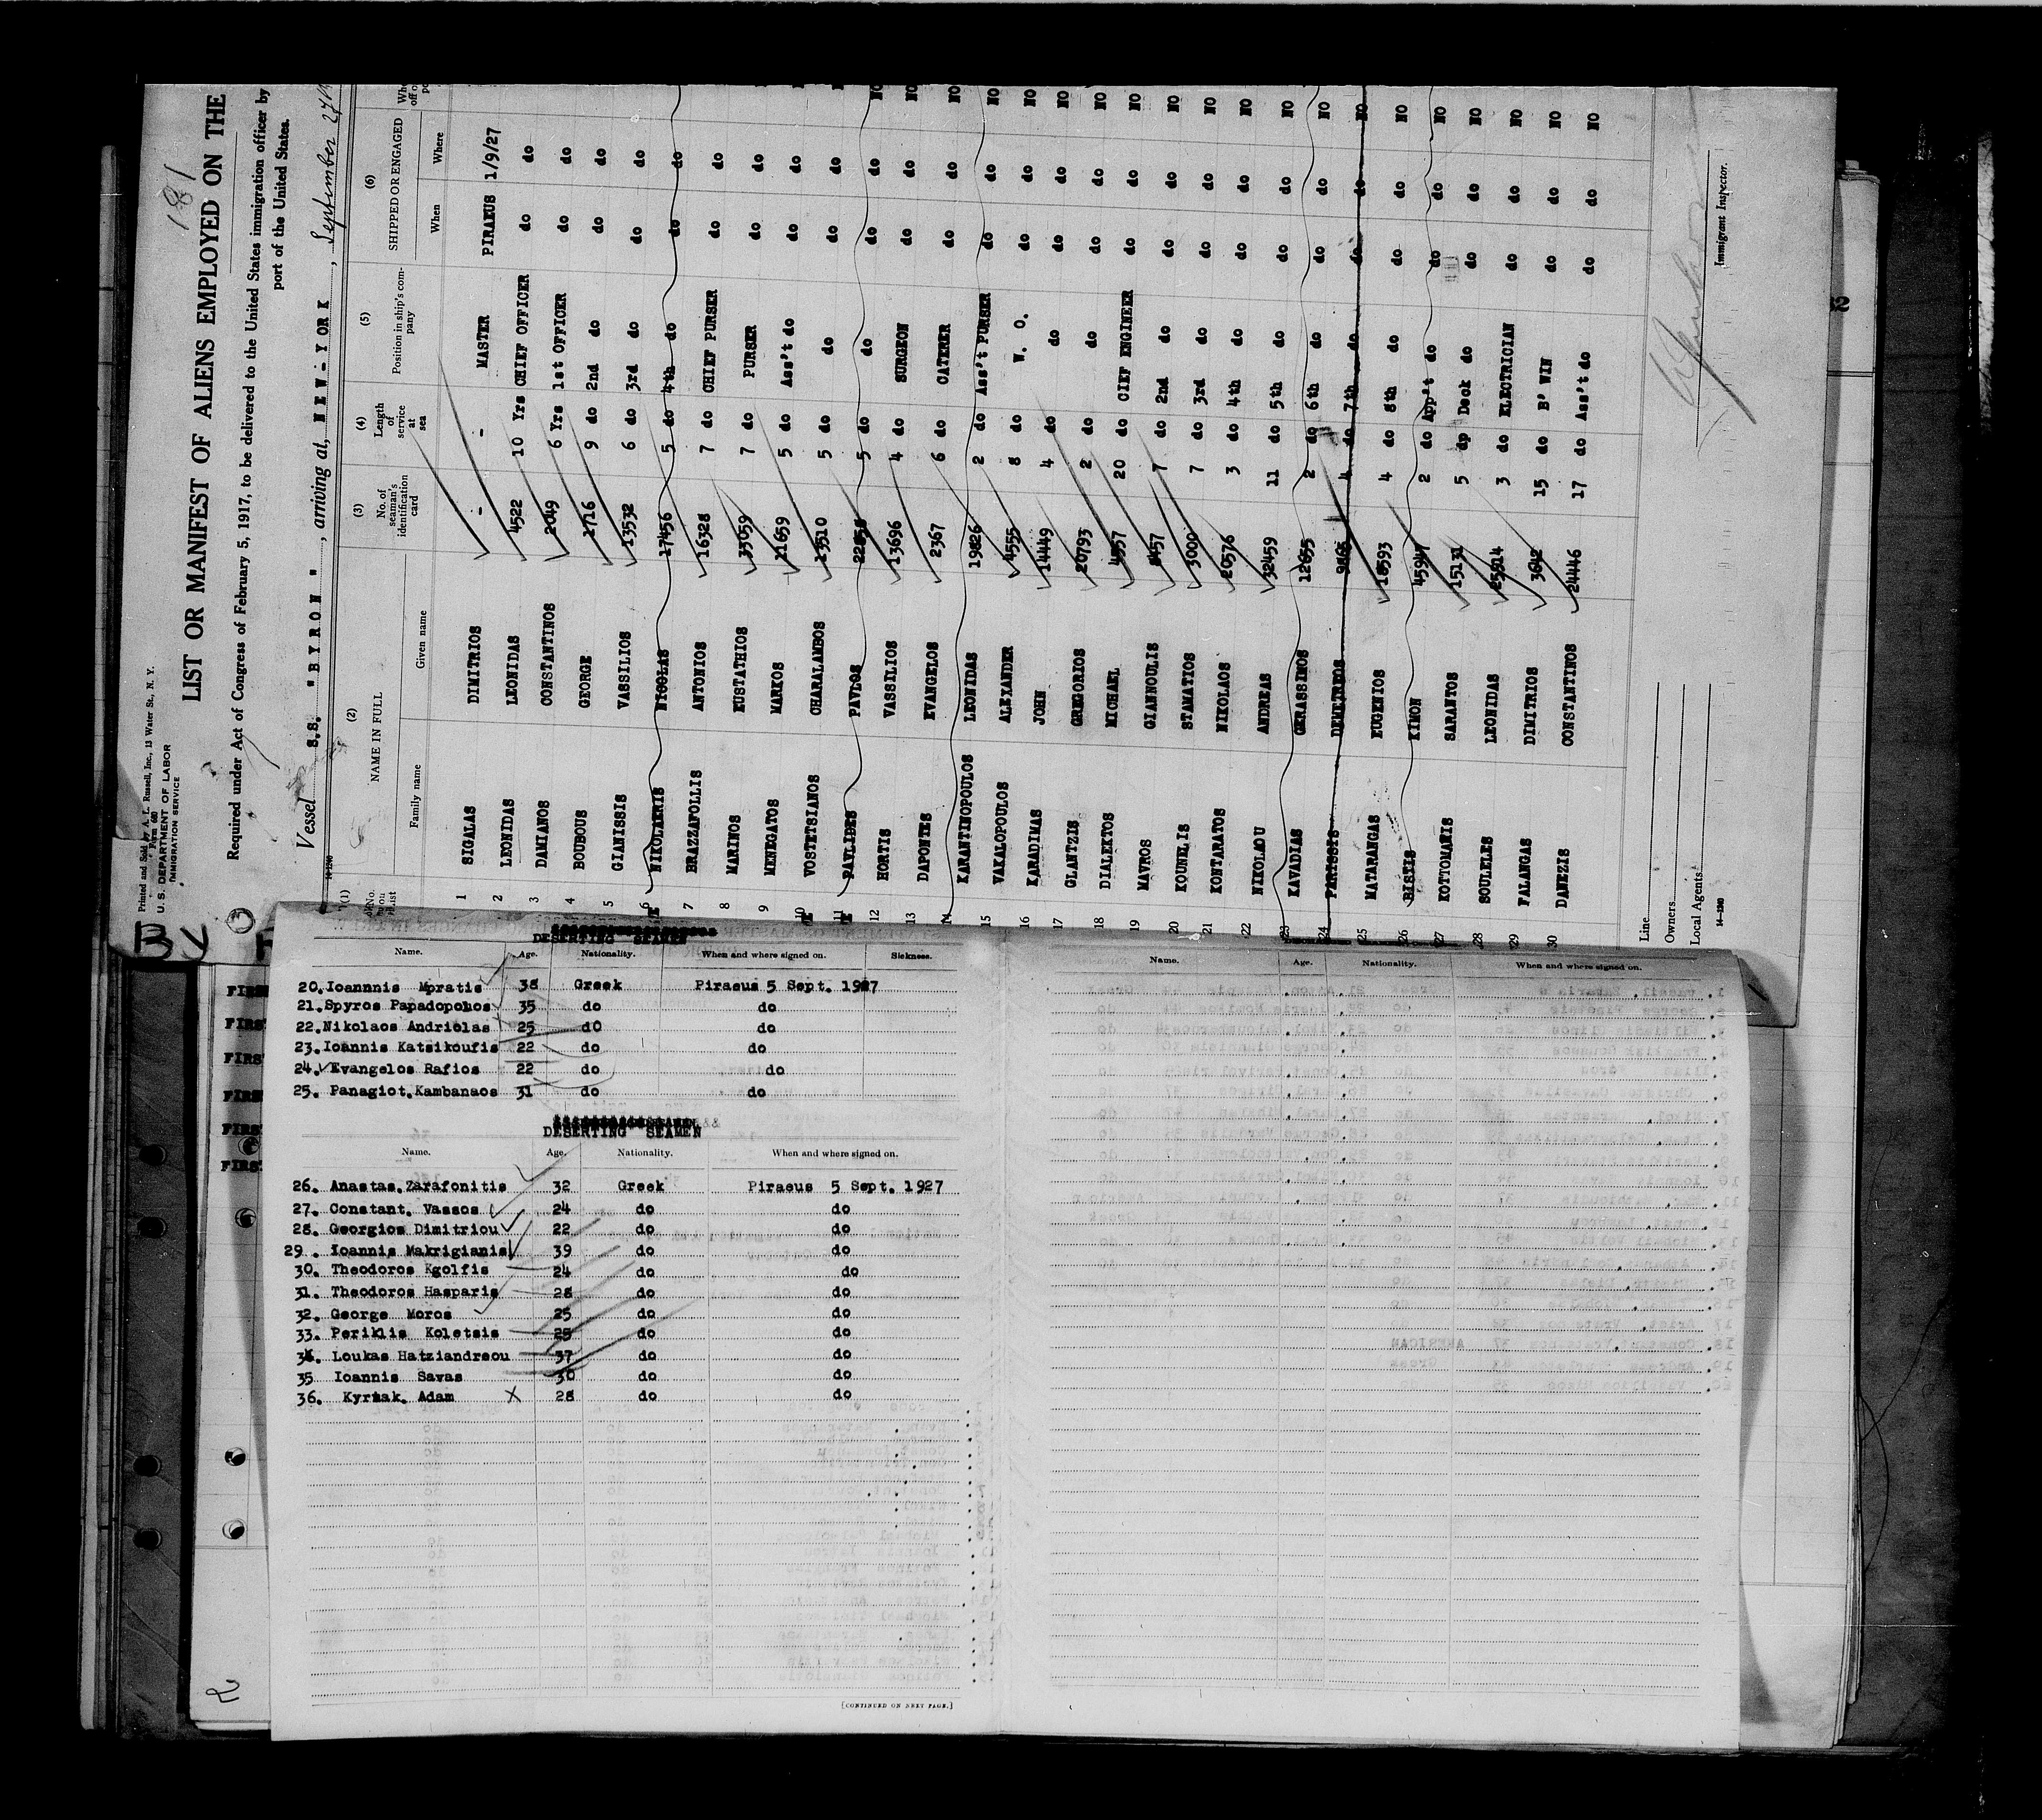 1881
Printed and Sold by A. L. Russell, Inc., 13 Water St., N. Y.
Form 680
U. S. DEPARTMENT OF LABOR
IMMIGRATION SERVICE
LIST OR MANIFEST OF ALIENS EMPLOYED ON THE
Required under Act of Congress of February 5, 1917, to be delivered to the United States immigration officer by
port of the United States.
Vessel S.S. " BYRON " , arriving at, NEW-YORK , September 27th
(1) (2) (3) (4) (5) (6)
NAME IN FULL No. of seaman's identification card Length of service at sea Position in ship's company SHIPPED OR ENGAGED
Family name Given name When Where
1 SIGALAS DIMITRIOS - - MASTER PIRAEUS 1/9/27
2 LEONIDAS LEONIDAS 4522 10 Yrs CHIEF OFFICER do do
3 DAMIANOS CONSTANTINOS 2049 6 Yrs 1st OFFICER do do
4 BOUBOUS GEORGE 1716 9 do 2nd do do do
5 GIANISSIS VASSILIOS 13532 6 do 3rd do do do
6 NIKOLAKRIS NICOLAS 17456 5 do 4th do do do
7 BRAZZAFOLLIS ANTONIOS 16328 7 do CHIEF PURSER do do
8 MARINOS EUSTATHIOS 33059 7 do PURSER do do
9 MENEGATOS MARKOS 21659 5 do Ass't do do do
10 VOSTETSIANOS CHARALAMBOS 13510 5 do do do do
11 PAVLIDES PAVLOS 5 do do do do NO
12 HORTIS VASSILIOS 13696 4 do SURGEON do do NO
13 DAPONTES EVANGELOS 2367 6 do CATERER do do NO
14 KARANTINOPOULOS LEONIDAS 19826 2 do Ass't PURSER do do NO
15 VAKALOPOULOS ALEXANDER 4555 8 do W. O. do do NO
16 KARADIMAS JOHN 14449 4 do do do do NO
17 GLANTZIS GREGORIOS 20793 2 do do do do NO
18 DIALEKTOS MICHAEL 4557 20 do CIEF ENGINEER do do NO
19 MAVROS GIANNOULIS 7 do 2nd do do do NO
20 KOUNELIS STAMATIOS 3000 7 do 3rd do do do NO
21 KONTARATOS NIKOLAOS 20576 3 do 4th do do do NO
22 NIKOLAOU ANDREAS 32459 11 do 5th do do do NO
23 KAVADIAS GERASSIMOS 12655 2 do 6th do do do NO
24 PARISSIS DEMETREOS 4 do 7th do do do NO
25 MATARANGAS EUGENIOS 18593 4 do 8th do do do NO
26 BISTIS KIMON 45947 2 do App't do do do NO
27 KOTTOMANIS SARANTOS 15131 5 dp Deck do do do NO
28 SOULELES LEONIDAS 25514 3 do ELECTRICIAN do do NO
29 FALANGAS DIMITRIOS 3642 15 do B' WIN do do NO
30 DANEZIS CONSTANTINOS 24446 17 do Ass't do do do NO
Line
Owners
Local Agents
14—1240
Immigrant Inspector.
By
DESERTING SEAMEN
Name. Age. Nationality. When and where signed on. Sickness.
20. Ioannnis Mpratis 38 Greek Piraeus 5 Sept. 1927
21. Spyros Papadopolos 35 do do
22. Nikolaos Andriolas 25 dO do
23. Ioannis Katsikoufis 22 do do
24. Evangelos Rafios 22 do do
25. Panagiot. Kambanaos 31 do do
DESERTING SEAMEN
Name. Age. Nationality. When and where signed on.
26. Anastas. Zarafonitis 32 Greek Piraeus 5 Sept. 1927
27. Constant. Vassos 24 do do
28. Georgios Dimitriou 22 do do
29. Ioannis Makrigianis 39 do do
30. Theodoros Kgolfis 24 do do
31. Theodoros Hasparis 28 do do
32. George Moros 25 do do
33. Periklis Koletsis 25 do do
34. Loukas Hatziandreou 37 do do
35 Ioannis Savas 30 do do
36. Kyriak. Adam X 28 do do
[CONTINUED ON NEXT PAGE.]
Name. Age. Nationality. When and where signed on.
FIRS
FIRS
FIRS
FIRS
FIRS
FIRS
2